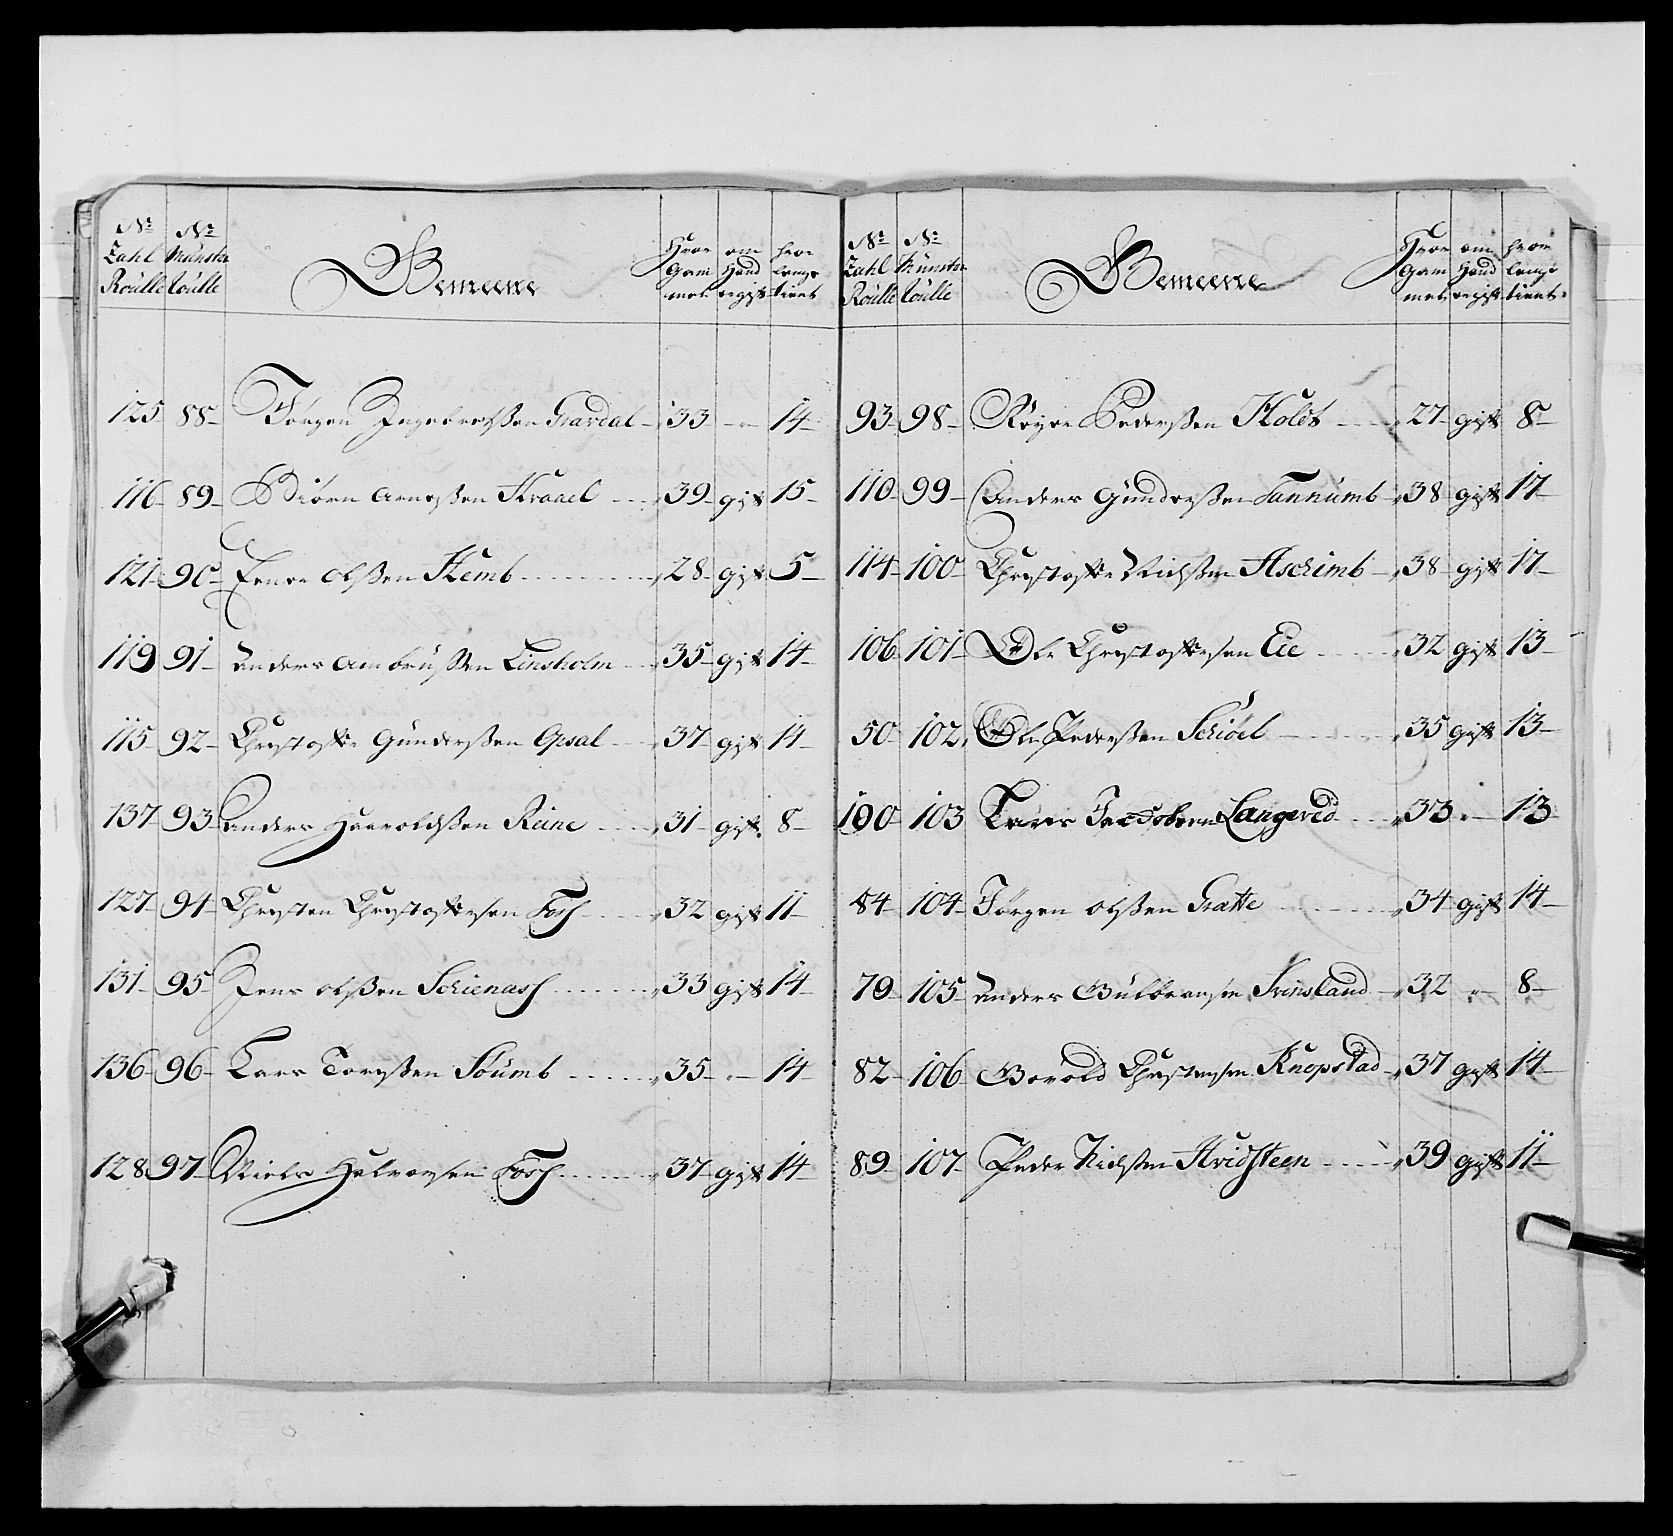 No Zahl Roulle No Münster Roulle Gemeene Hvor Gam mel om Hand er gift hvor lenge tient
125 88 Jørgen Ingebretßen Grardal 33 - 14
116 89 Biørn Arneßen Kraael 39 gift 15
121 90 Ever Olßen Hemb 28 gift 5
119 91 Anders Ambrußen Linsholm 35 gift 14
115 92 Christoffer Gunderßen Opsal 37 gift 14
137 93 Anders Harroldßen Reine 31 gift 8
127 94 Christen Christoffersen Foss 32 gift 11
131 95 Jens Olßen Schienass 33 gift 14
136 96 Lars Toreßen Soumb 35 - 14
128 97 Niels Halvorsen Foss 37 gift 14
No Zahl Roulle No Münster Roulle Gemeene Hvor Gam mel om Hand er gift hvor lenge tient
93 98 Røyer Pederßen Holdt 27 gift 8
110 99 Anders Gunderßen Tannumb 38 gift 17
114 100 Christoffer Nielßen Aschimb 38 gift 17
106 101 Ole Christoffersen Eie 32 gift 13
50 102 Ole Pederßen Schiöel 35 gift 13
100 103 Lars Jacobsen Langerud 33 - 13
84 104 Jørgen Olßen Gratte 34 gift 14
79 105 Anders Gulbransen Svinsland 32 - 8
82 106 Christensen Knopstad 37 gift 14
89 107 Peder Nielßen Hvidsteen 39 gift 11